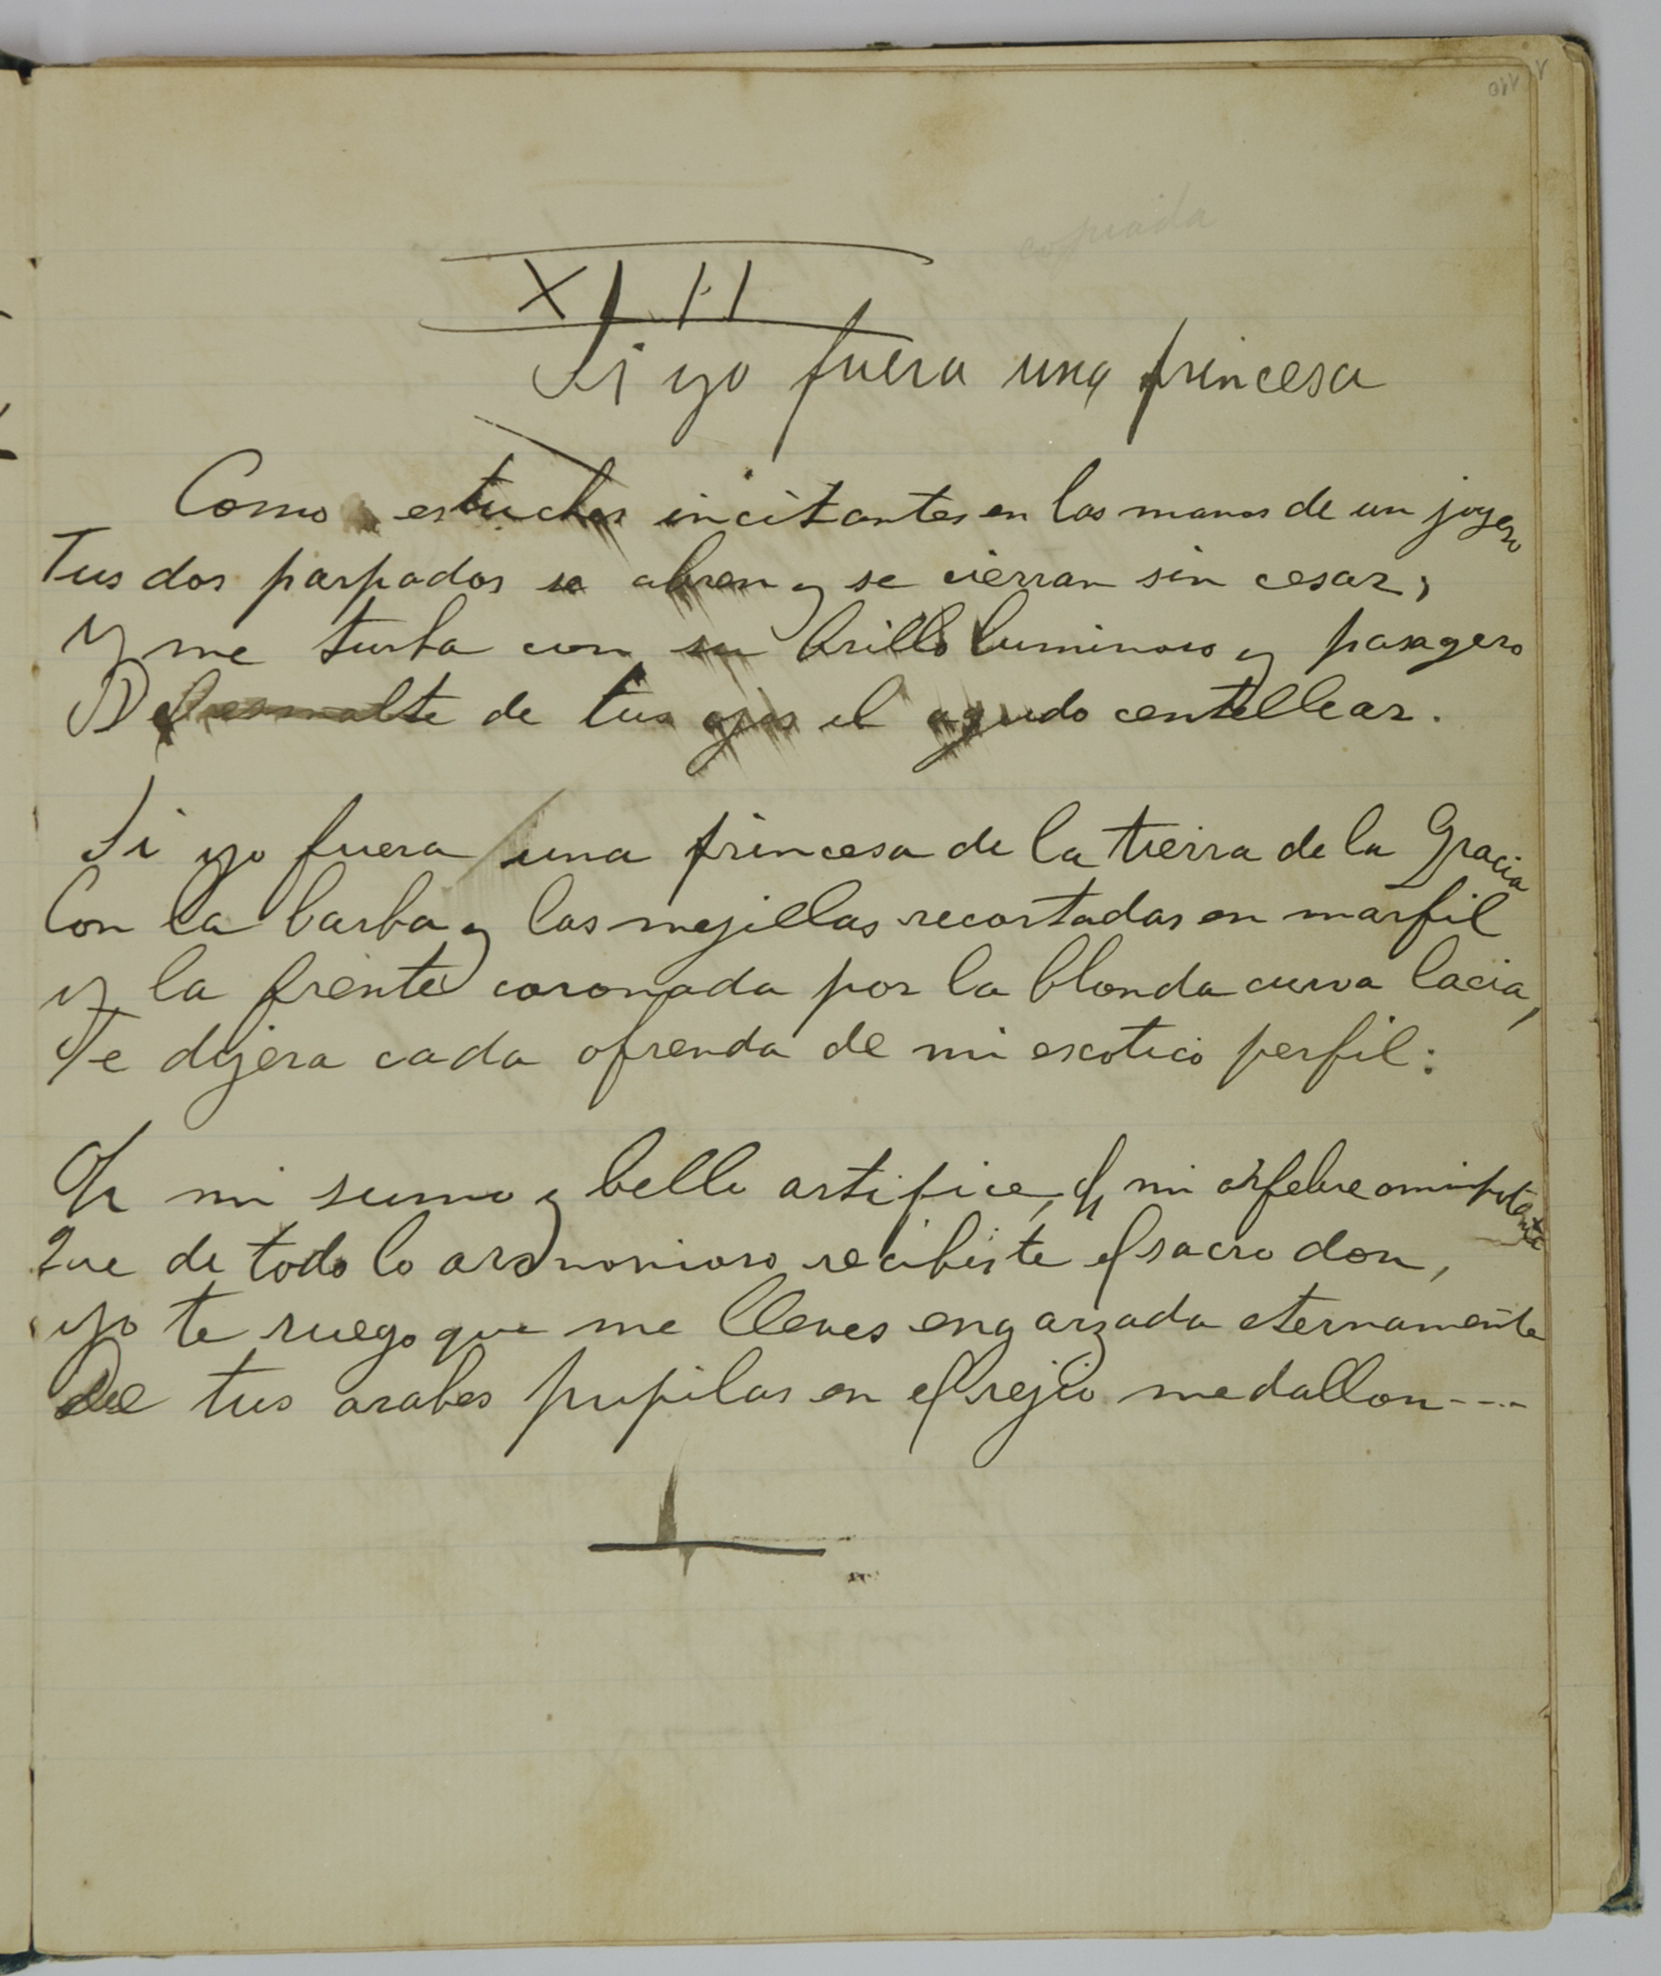 copiada
XLII
Si yo fuera una princesa
Como estuches incitantes en las manos de un joyero
Tus dos parpados se abren y se cierran sin cesar,
Y me turba con su brillo luminoso y pasagero
Del esmalte de tus ojos el agudo centellear.
Si yo fuera una princesa de la tierra de la Gracia
Con la barba y las mejillas recortadas en marfil
y la frente coronada por la blonda curva lacia,
Te dijera cada ofrenda de mi escotico perfil:
Oh mi sumo y bello artifice, oh mi orfebre omnipotente
Que de todo lo armonioso recibiste el sacro don,
yo te ruego que me lleves engarzada eternamente
De tus arabes pupilas en el rejio medallon----